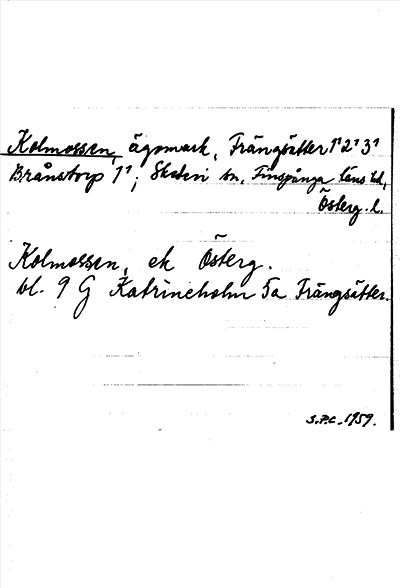 Kolmossen, ägomark, Frängsätter 1¹ 2¹ 3¹
Brånstorp 1¹; Skedevi sn, Finspånga läns hd,
Österg. l.
Kolmossen, ek Österg.
bl. 9 G Katrineholm 5a Frängsätter.
S.P.C. 1959.